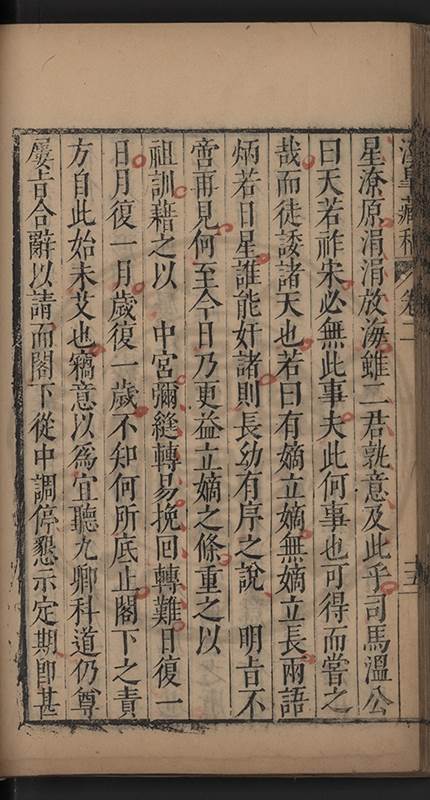 藏稿 卷二 五
星潦原涓涓放海雖二君孰意及此乎司馬溫公
曰天若祚宋必無此事夫此何事也可得而嘗之
哉而徒諉諸天也若曰有嫡立嫡無嫡立長兩語
炳若日星誰能奸諸則長幼有序之說 明旨不
啻再見何至今日乃更益立嫡之條重之以
祖訓藉之以 中宮彌縫轉易挽回轉難日復一
日月復一月歲復一歲不知何所底止閣下之責
方自此始未艾也竊意以為宜聽九卿科道仍尊
屢旨合辭以請而閣下從中調停懇示定期卽甚